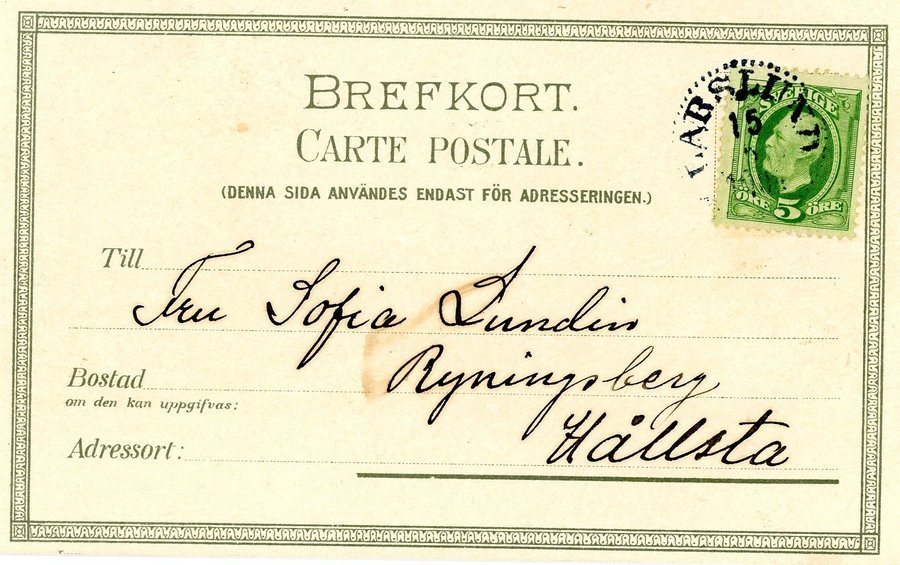 BREFKORT.
CARTE POSTALE.
(DENNA SIDA ANVÄNDES ENDAST FÖR ADRESSERINGEN.)
LARSLUND
15
SVERIGE
ÖRE 5 ÖRE
Till
Fru Sofia Lundin
Bostad
Ryningsberg
om den kan uppgifvas:
Adressort:
Hållsta